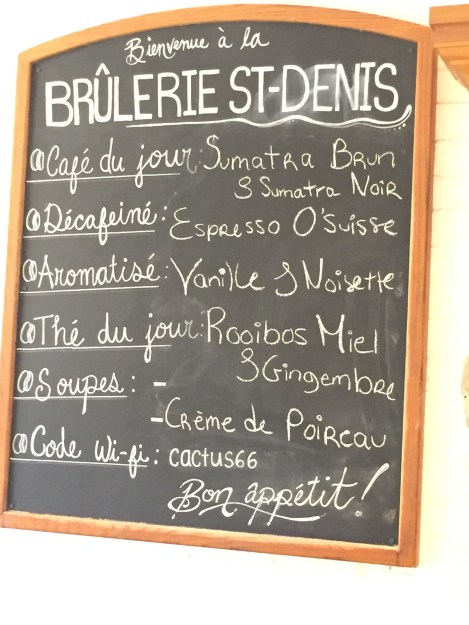 Bienvenue à la
BRÛLERIE ST-DENIS
Café du jour: Sumatra Brun
& Sumatra Noir
Décafeiné: Espresso O'Suisse
Aromatisé: Vanille & Noisette
Thé du jour: Rooibos Miel
& Gingembre
Soupes: -
- Crème de Poireau
Code Wi-fi: cactus66
Bon appétit!